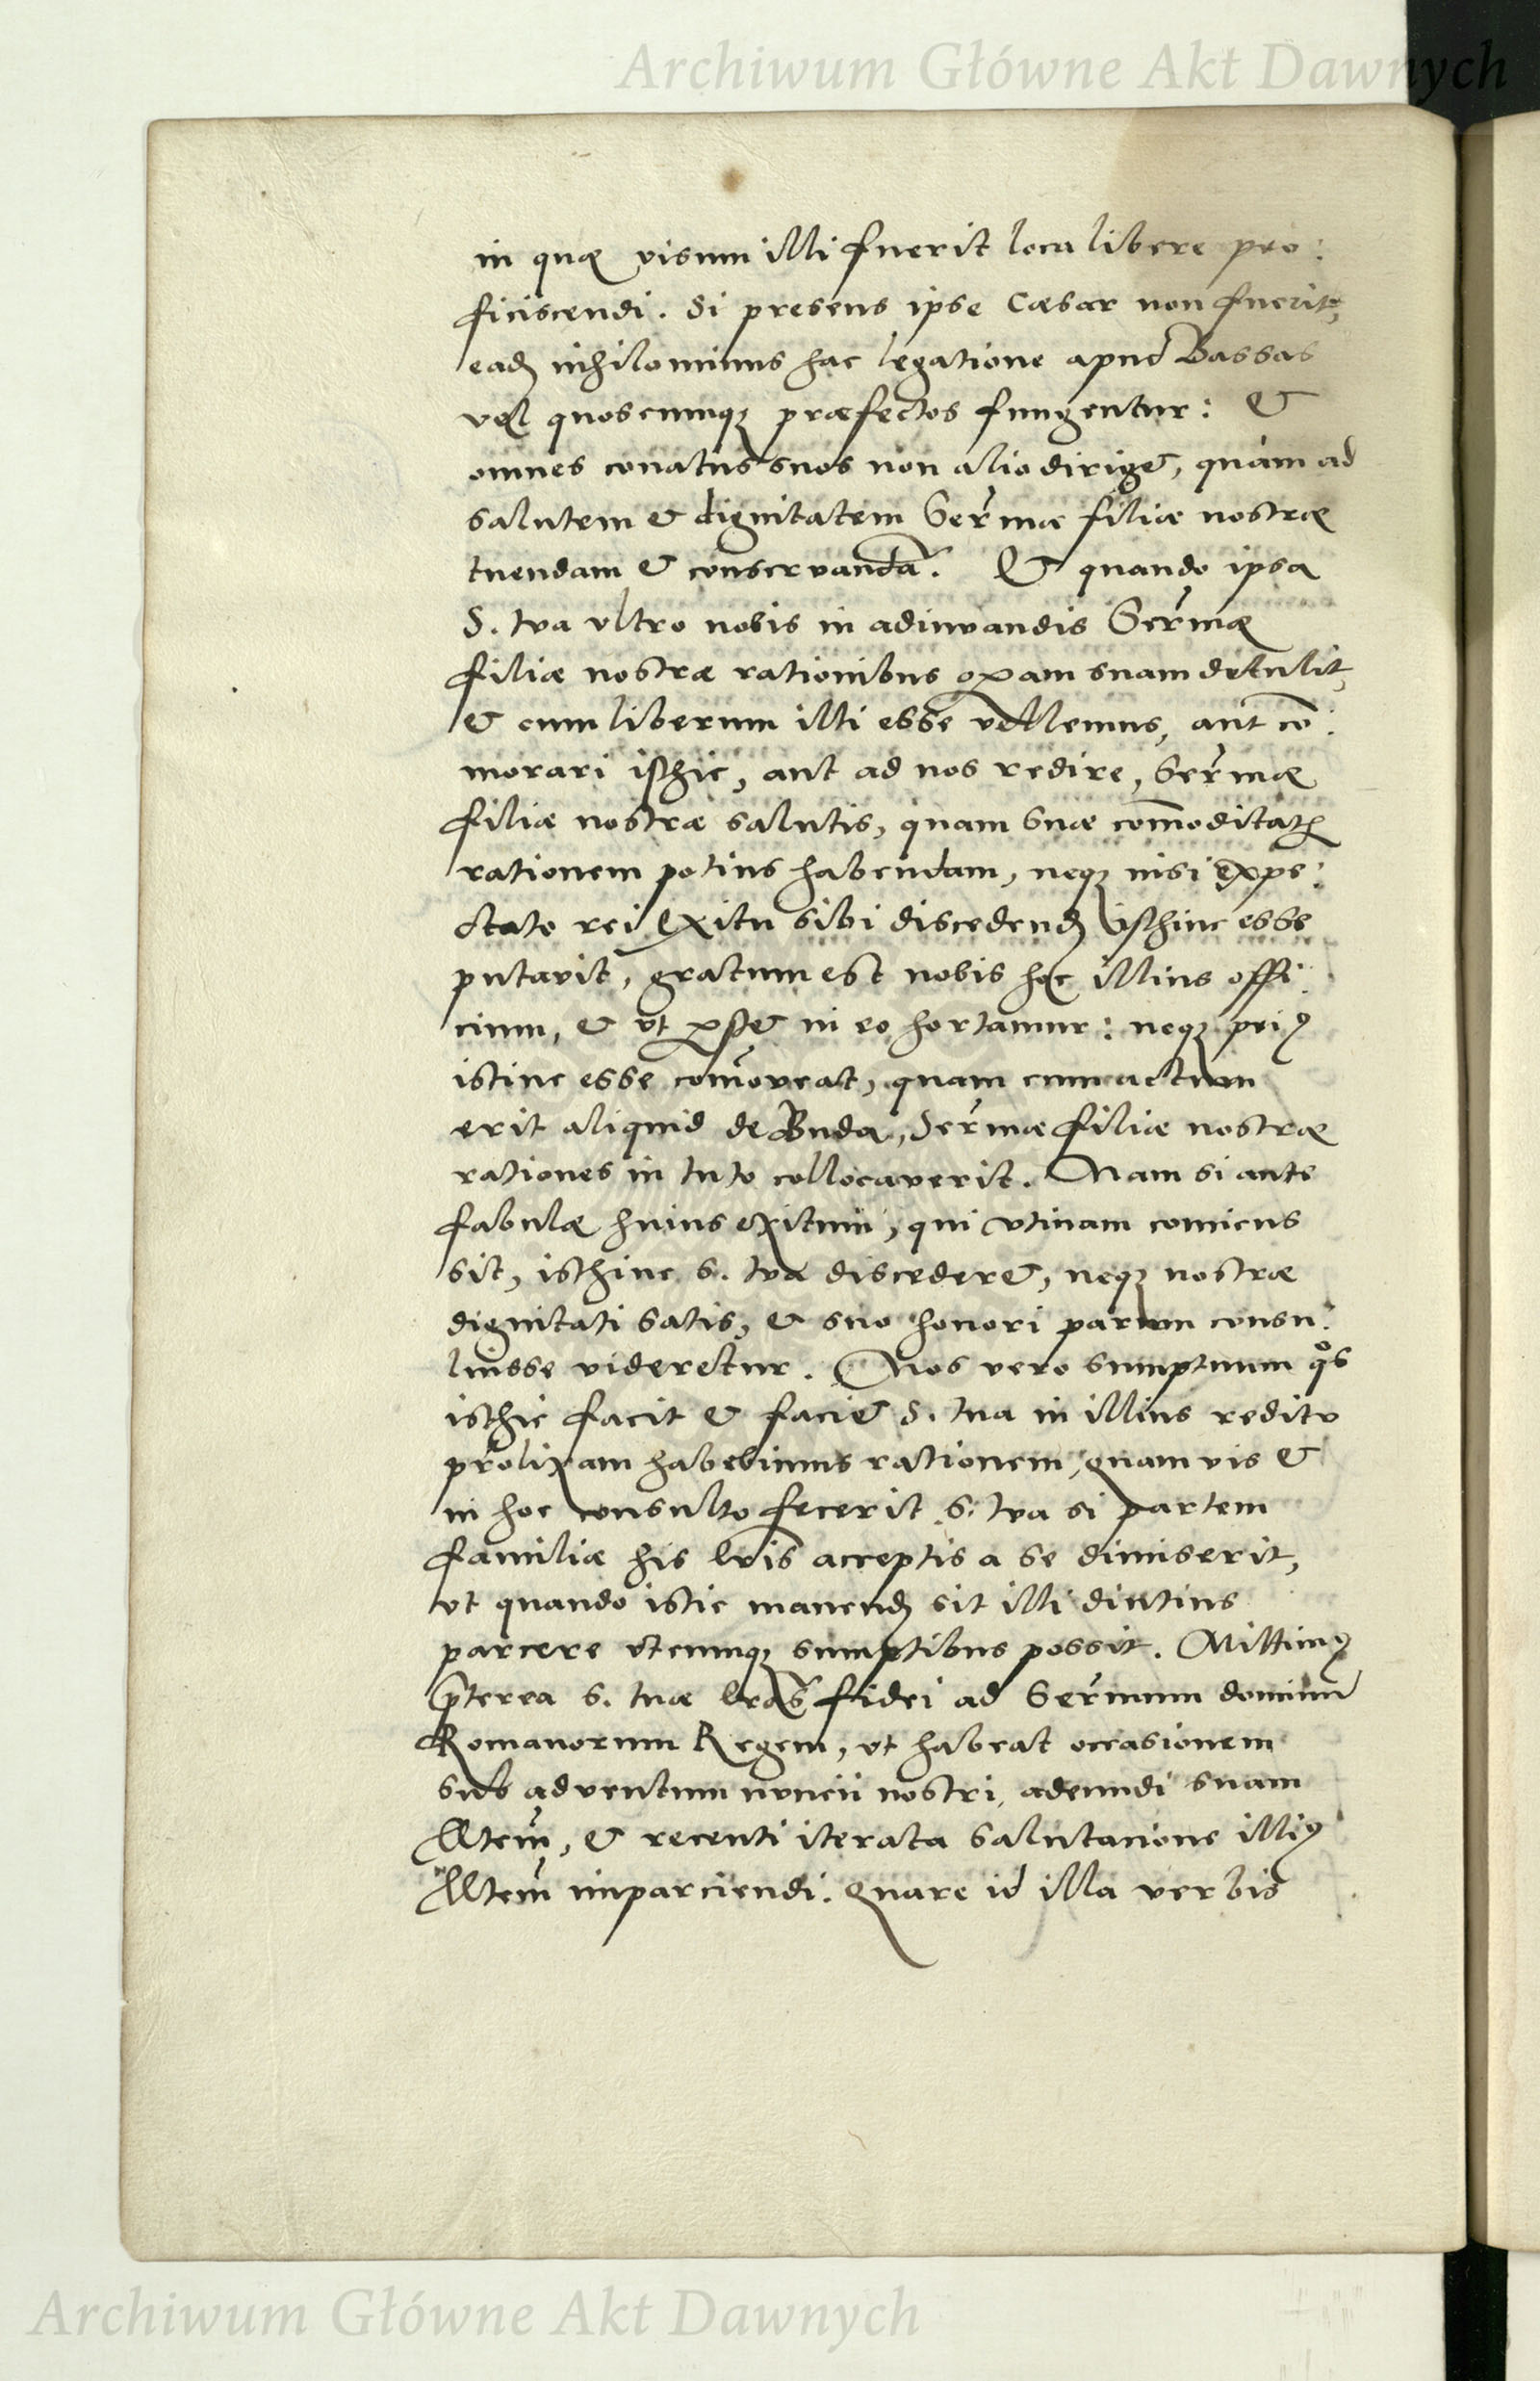 Archiwum Główne Akt Dawnych
in quæ visum illi fuerit loca libere pro:
ficiscendi. Si presens ipse Cæsar non fuerit,
eadẽ nihilominus hac legatione apud Bassas
vel quoscumqꝫ præfectos fungentur: &
omnes conatus suos non alio diriget, quàm ad
salutem & dignitatem Serᵐᵃᵉ filiæ nostræ
tuendam & conservandã. Et quando ipsa
S. tva vltro nobis in adiuvandis Serᵐᵃᵉ
filiæ nostræ rationibus oꝑam suam detulit,
& cum liberum illi esse vellemus, aut cõ:
morari isthic, aut ad nos redire, Serᵐᵃᵉ
filiæ nostræ salutis, quam suæ com̃oditatꝭ
rationem potius habendam, neqꝫ nisi expe:
ctato rei exitu sibi discedendũ isthinc esse
putavit, gratum est nobis hoc illius offi:
cium, & vt ꝑstet in eo hortamur: neqꝫ priꝰ
istinc esse com̃oveat, quam cum actum
erit aliquid de Buda, Serᵐᵃᵉ filiæ nostræ
rationes in tuto collocaverit. Nam si ante
fabulæ huius exitum, qui vtinam comicus
sit, isthinc S. tva discederet, neqꝫ nostræ
dignitati satis, & suo honori parum consu:
luisse videretur. Nos vero sumptuum qͦs
isthic facit & faciet S. tua in illius reditv
prolixam habebimus rationem, quamvis &
in hoc consulto fecerit S. tva si partem
familiæ his lr̃is acceptis a se dimiserit,
vt quando istic manendũ sit illi diutius
parcere vtcumqꝫ sumptibus possit. Mittimꝰ
p̃terea S. tuæ lr̃as fidei ad Serᵐᵘᵐ dominũ
Romanorum Regem, vt habeat occasionem
sub adventum nvncii nostri, adeundi suam
Mᵗᵉᵐ, & recenti iterata salutacione illiꝰ
Mᵗᵉᵐ imparciendi. Quare id illa verbis
Archiwum Główne Akt Dawnych